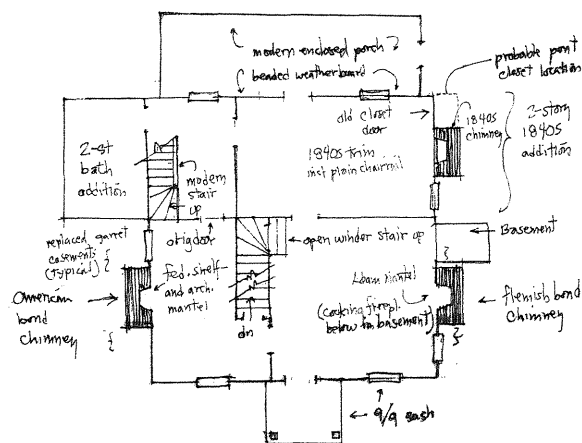 modern enclosed porch
beaded weatherboard
probable pent
closet location
old closet
door
1840s
chimney
2-story
1840s
addition
2-st
bath
addition
modern
stair
up
1840s trim
inst plain chairrail
replaced garret
casements
(typical)
orig door
open winder stair up
Basement
American
bond
chimney
fed. shelf-
and arch.
mantel
dn
Adam Mantel
(cooking firepl.
below in basement)
flemish bond
chimney
9/9 sash